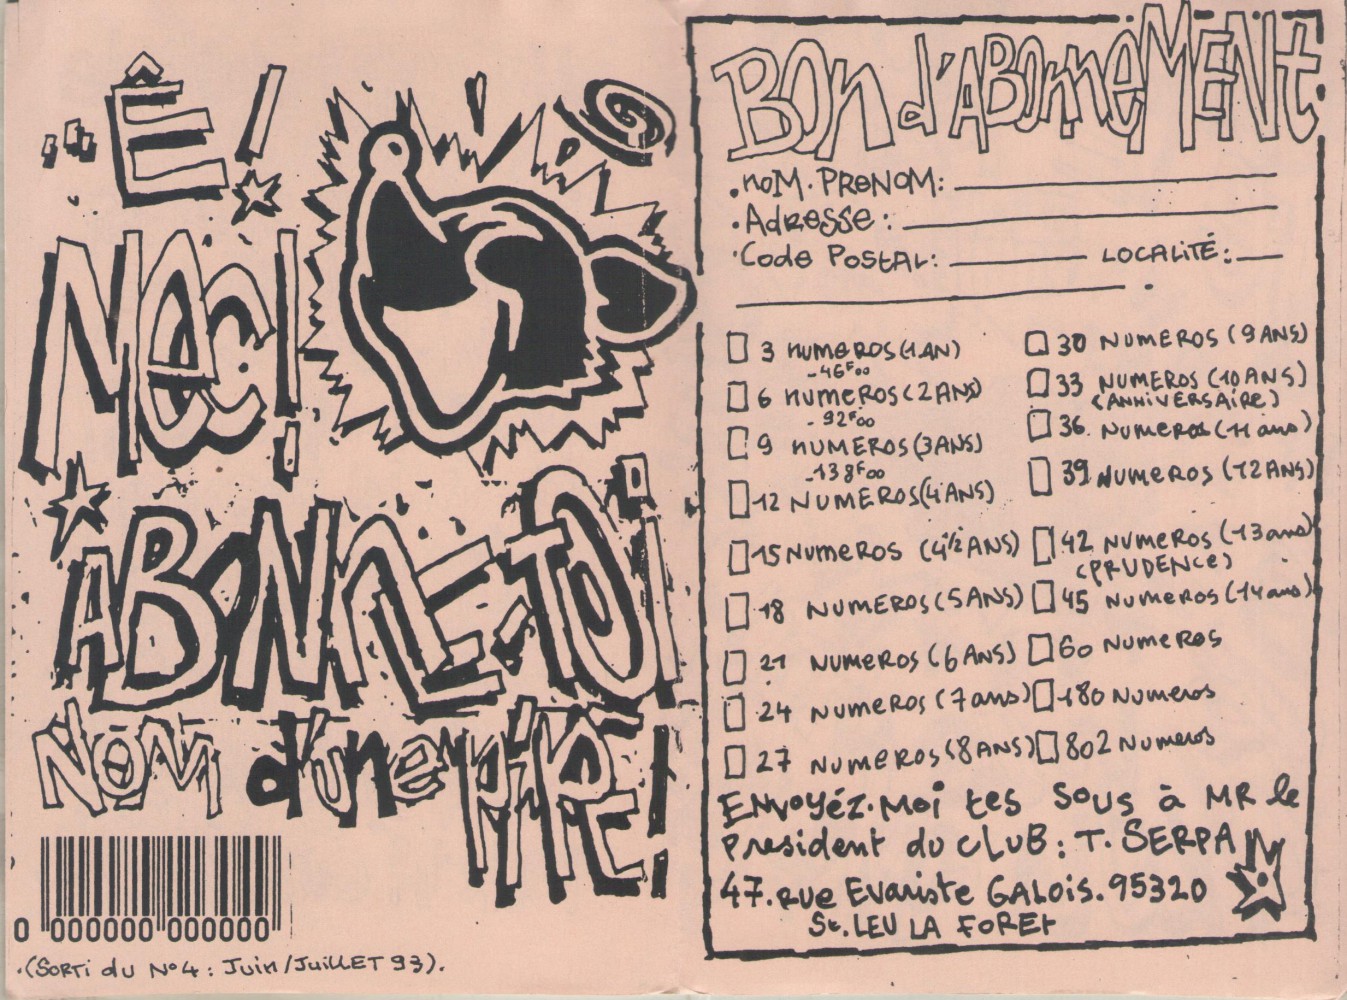 "Ê!
MEC!
ABNNE-TOI
NOM d'une PIPE!
0 000000 000000
.(SORTI du N°4 : Juin/JuiLLET 93).
BON d'ABONNEMENt.
.NOM.PRENOM:
.Adresse:
.Code POSTAL: LOCALITÉ:
3 NUMEROS (1 AN)
-46F00
6 NUMEROS (2 ANS)
-92F00
9 NUMEROS (3 ANS)
-138F00
12 NUMEROS (4 ANS)
15 NUMEROS (4 1/2 ANS)
18 NUMEROS (5 ANS)
21 NUMEROS (6 ANS)
24 NUMEROS (7 ans)
27 NUMEROS (8 ANS)
30 NUMEROS (9 ANS)
33 NUMEROS (10 ANS)
(ANNIVERSAIRE)
36. NUMEROS (11 ans)
39 NUMEROS (12 ANS)
42 NUMEROS (13 ans)
(PRUDENCE)
45 NUMEROS (14 ans)
60 NUMEROS
180 NUMEROS
802 NUMEROS
ENVOYÉZ.MOI tes SOUS à MR le
President du CLUB : T. SERPA
47.RUE Evariste GALOIS.95320
St.LEU LA FORET